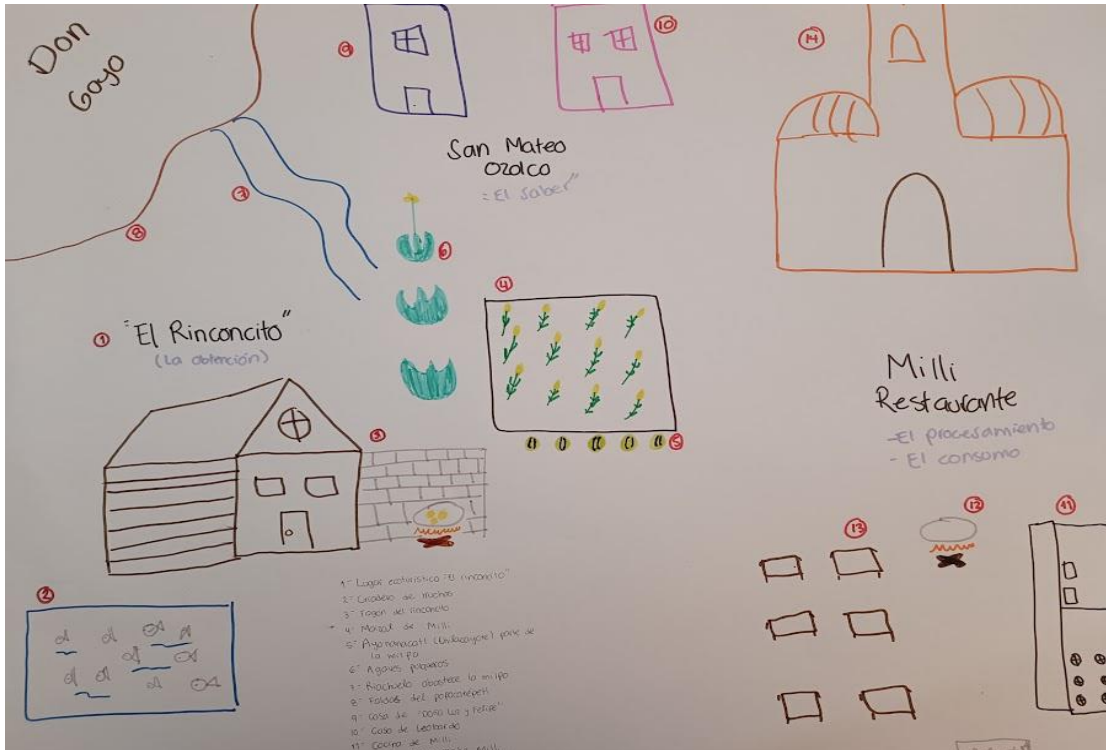 Don
Goyo
9
10
14
San Mateo
Ozolco
"El saber"
7
8
6
4
1 "El Rinconcito"
(La obtención)
Milli
Restaurante
- El procesamiento
- El consumo
3
5
2
13
12
11
1- Lugar ecoturístico "El rinconcito"
2- Criadero de truchas
3- Fogón del rinconcito
4- Maizal de Milli
5- Ayonanacatl (Chilacayote) parte de
la milpa
6- Agaves pulqueros
7- Riachuelo abastece la milpa
8- Faldas del popocatépetl
9- Casa de "Doña Luz y Felipe"
10- Casa de Leobardo
11- Cocina de Milli
Milli